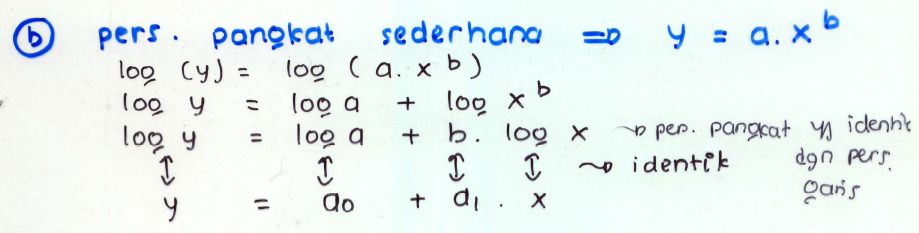 (b) pers. pangkat sederhana => y = a.x^b
log (y) = log (a.x^b)
log y = log a + log x^b
log y = log a + b. log x ~> per. pangkat yg identik dgn pers. garis
↕ ↕ ↕ ↕ ~> identik
y = a₀ + a₁ . x